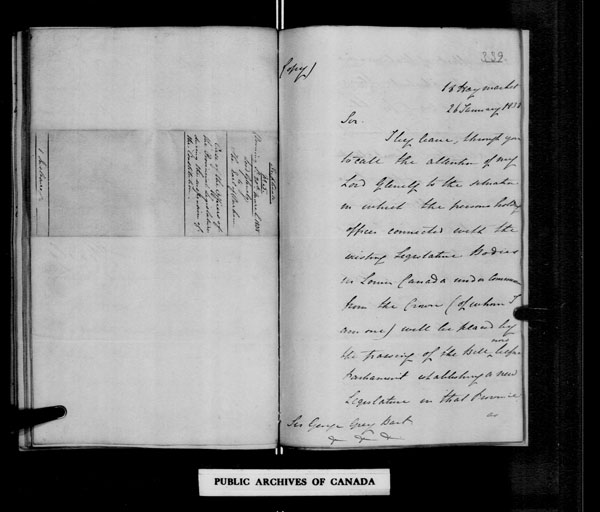 339.
(Copy)
18 Haymarket
26 January 1838
Sir.
I beg leave, through you
to call the attention of my
Lord Glenelg to the situation
in which the persons holding
offices connected with the
existing Legislative Bodies
in Lower Canada under Commission
from the Crown (of whom I
am one) will be placed by
the passing of the Bill now before
Parliament establishing a new
Legislature in that Province
as
Sir George Grey Bart
&c &c &c
March 1838
Case of the Officers of
the Provincial Legislature
during the suspension of
the Constitution.
PUBLIC ARCHIVES OF CANADA